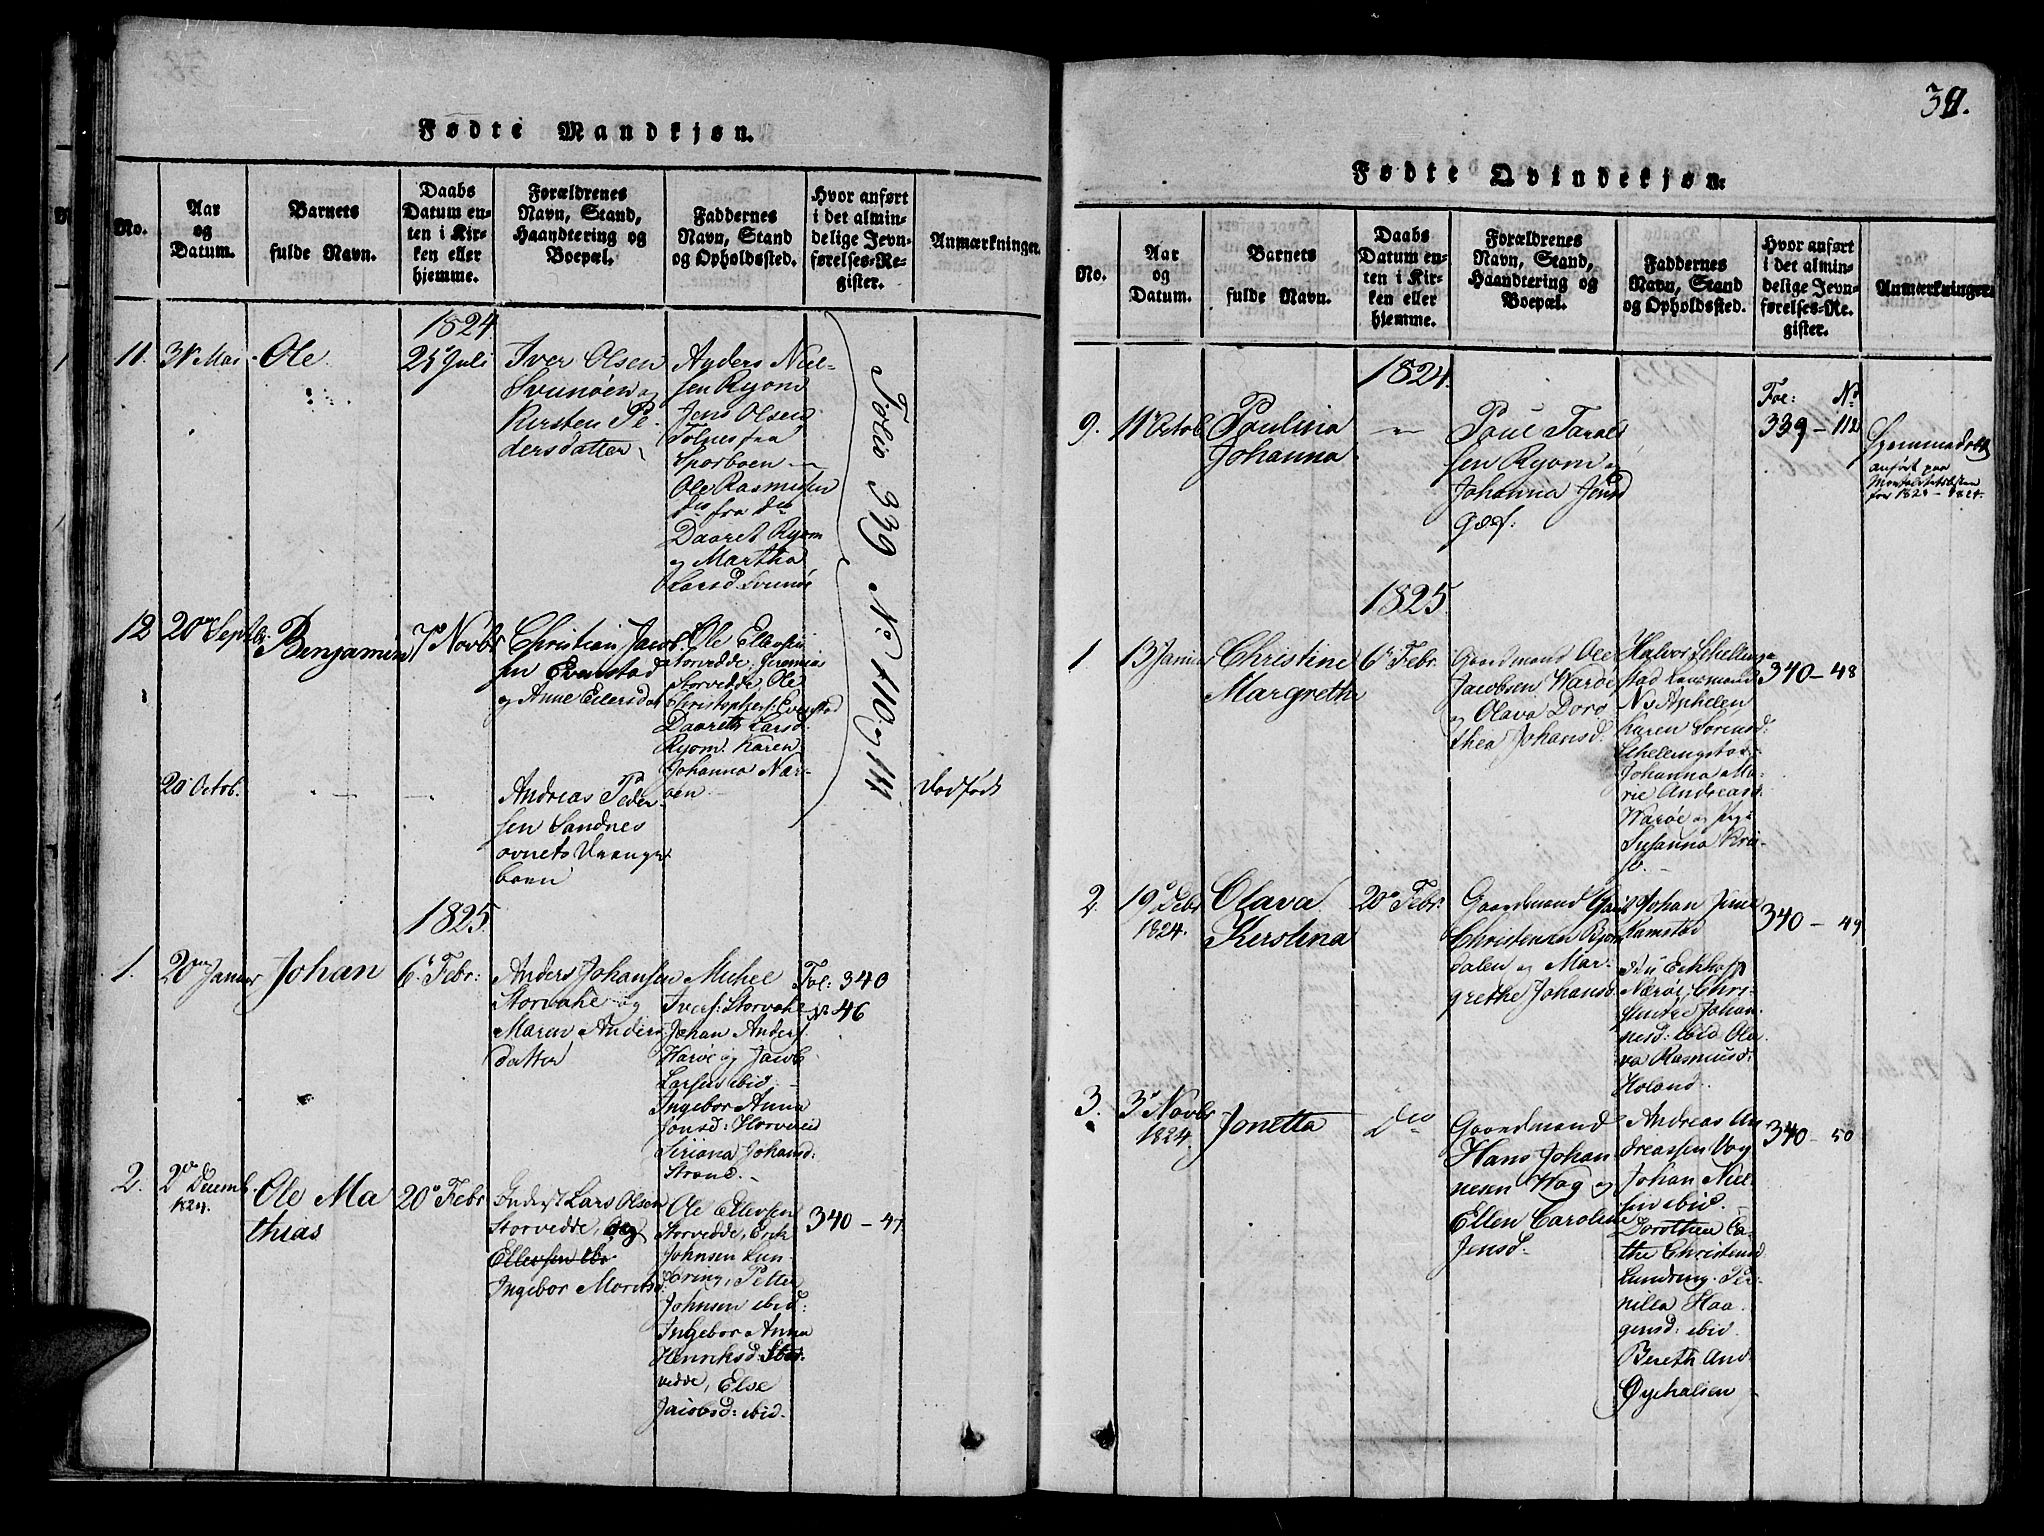 Fødte Mandkjøn.
No.
Aar
og
Datum.
Barnets
fulde Navn.
Daabs
Datum en-
ten i Kir-
ken eller
hjemme.
Forældrenes
Navn, Stand,
Haandtering og
Boepæl.
Faddernes
Navn, Stand
og Opholdssted.
Hvor anført
i det almin-
delige Jevn-
førelses-Re-
gister.
Anmærkninger.
1824
11.
31 Mai
Ole
25 Juli
Iver Olsen
Svinöen og
Kirsten Pe-
dersdatter
Anders Niel-
sen Ryom
Jens Olsen
Tolnes fra
Sporboen
Ole Rasmussen
do fra do
Daaret Ryom
og Martha
Larsd. Svinöe
Folio 339 No 110 og 111
12
20 Septbr.
Benjamin
7 Novbr
Christian Jacob-
sen Evenstad
og Anne Eilersdat
Ole Ellevsen
Storvedde. Jeremias
Storvedde Ole
Christophers. Evenstad
Daareth Larsd.
Ryom. Karen
Johanna Nær-
öen.
20 Octob.
Andreas Peder-
sen Sandnes
ovnets
barn
Dödfödt
1825
1.
20 Januar
Johan
6 Febr:
Anders Johansen
Storvahe og
Maren Anders
datter
Michel
Ivers: Storvahe
Johan Anders.
Waröe og Jacob
Larsen ibid,
Ingebor Anna
Jonsd: Horveid
Siriana Johansd:
Strand.
Fol: 340
No 46
2.
2 Decemb.
1824.
Ole Ma
thias
20 Febr
Inderst Lars Olsen
Storvedde, og
Ellevsen
Ingebor Moritsd.
Ole Ellevsen
Storvedde, Erik
Johnsen Lun-
dring, Petter
Johnsen ibid:
Ingebor Anna
Henriksd: Stor-
vedde, Else
Jacobsd: ibid.
340 - 47
39.
Fødte Qvindekjøn.
No.
Aar
og
Datum.
Barnets
fulde Navn.
Daabs
Datum en-
ten i Kir-
ken eller
hjemme.
Forældrenes
Navn, Stand,
Haandtering og
Boepæl.
Faddernes
Navn, Stand
og Opholdssted.
Hvor anført
i det almin-
delige Jevn-
førelses-Re-
gister.
Anmærkninger.
1824.
9.
11 Octob
Paulina
Johanna
Poul Tarald
sen Ryom og
Johanna Jensd
Fol: No
339 - 112
Hjemmedöbt
anfört paa
for 1824
1825.
1
13 Januar
Christine
Margreth
6 Febr.
Gaardmand Ole
Jacobsen Waröe
og Olava Doro
thea Johansd.
Halvor Schellings
stad Landmand
Karen Sörensd:
Johanna Ma-
rie Andreasd.
Waröe og
Susanna
340 - 48
2.
19 Debr
1824.
Olava
Kerstina
20 Febr:
Gaardmand
Christensen
dalen og Mar-
grethe Johansd
Johan
Ramstad
Næröe, Chri-
stine Johan-
nesd: ibid Ola
va Rasmusd:
Holand.
340 - 49
3.
3 Novbr
1824.
Jonetta
Do
Gaardmand
Hans Johan
nesen Wog og
Ellen Caroline
Jensd.
Andreas An
dreassen Vog
Johan Niel-
sen ibid.
Dorothea Ca-
the Christensd
Lundring. Per-
nilla Haa-
gensd: ibid.
Bereth And.
340 - 50